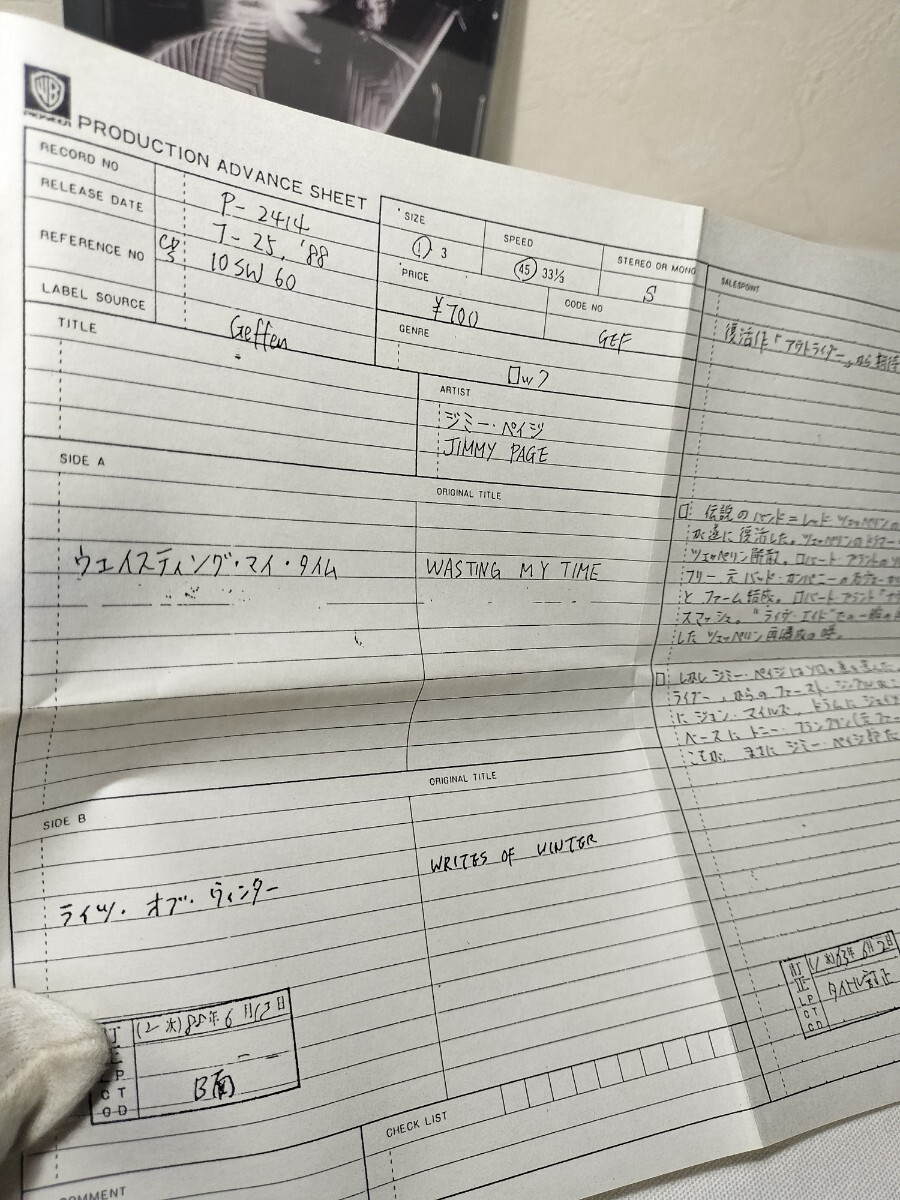 WB
PIONEER
PRODUCTION ADVANCE SHEET
RECORD NO P-2414
RELEASE DATE 7-25, '88
REFERENCE NO CD/S 10SW 60
LABEL SOURCE Geffen
SIZE
1 3
SPEED
45 33⅓
STEREO OR MONO
S
PRICE
¥700
CODE NO
GEF
GENRE
ロック
TITLE
ARTIST
ジミー・ペイジ
JIMMY PAGE
SIDE A
ORIGINAL TITLE
ウェイスティング・マイ・タイム
WASTING MY TIME
SIDE B
ORIGINAL TITLE
ライツ・オブ・ウィンター
WRITES OF WINTER
88年6月13日
B面
CHECK LIST
COMMENT
SALESPOINT
復活作「アウトライダー」から期待
伝説のバンド=レッド ツェッペリンの
が遂に復活した。ツェッペリンのドラマー
ツェッペリン解散。ロバート プラントの
フリー 元バッド・カンパニーの
と ファーム結成。ロバート プラント
スマッシュ。"ライヴ・エイド"での一
した ツェッペリン再編成の噂。
しかし ジミー・ペイジはソロの道を選んだ。
ライダー」からのファースト・シングル
に ジョン・マイルズ、ドラムに ジェイソ
ベースに トニー・フランクリン(元ファー
これが、まさに ジミー・ペイジ
63年6月2日
タイトル訂正
LP
CT
CD